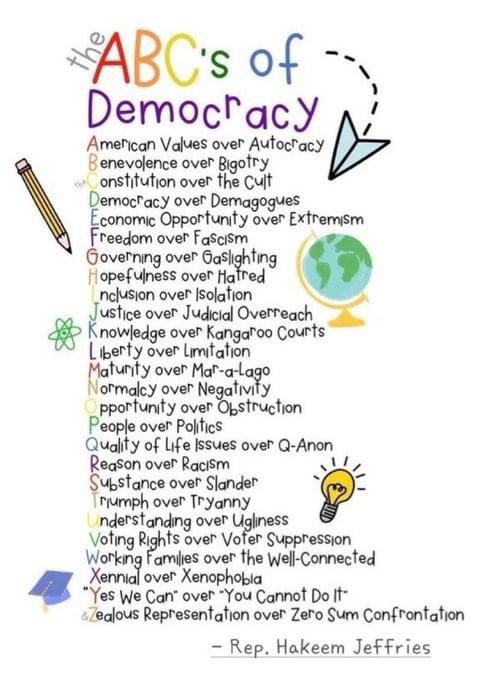 the ABC's of
Democracy
American Values over Autocracy
Benevolence over Bigotry
the Constitution over the Cult
Democracy over Demagogues
Economic Opportunity over Extremism
Freedom over Fascism
Governing over Gaslighting
Hopefulness over Hatred
Inclusion over Isolation
Justice over Judicial Overreach
Knowledge over Kangaroo Courts
Liberty over Limitation
Maturity over Mar-a-Lago
Normalcy over Negativity
Opportunity over Obstruction
People over Politics
Quality of Life Issues over Q-Anon
Reason over Racism
Substance over Slander
Triumph over Tryanny
Understanding over Ugliness
Voting Rights over Voter Suppression
Working Families over the Well-Connected
Xennial over Xenophobia
"Yes We Can" over "You Cannot Do It"
&Zealous Representation over Zero Sum Confrontation
- Rep. Hakeem Jeffries